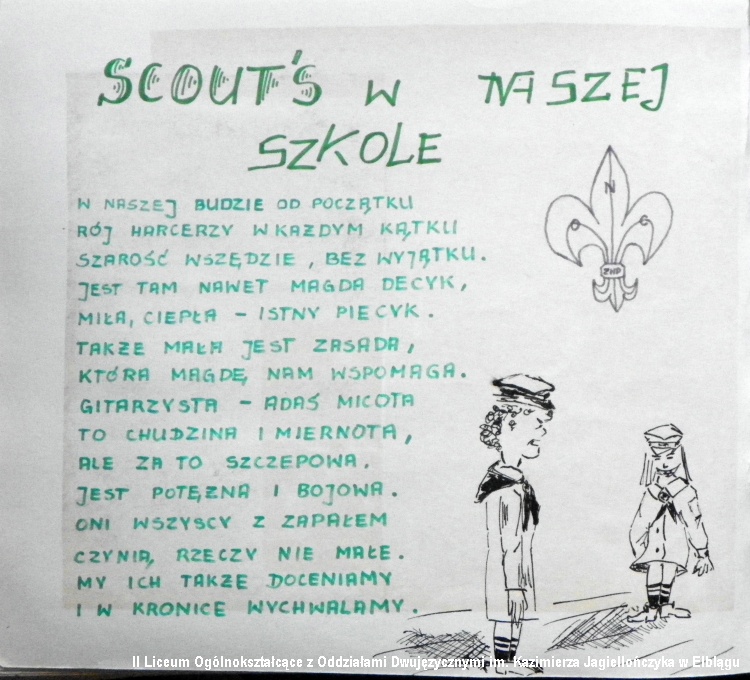 SCOUT'S W NASZEJ
SZKOLE
W NASZEJ BUDZIE OD POCZĄTKU
RÓJ HARCERZY W KAZDYM KĄTKU
SZAROŚĆ WSZĘDZIE, BEZ WYJĄTKU.
JEST TAM NAWET MAGDA DECYK,
MIŁA, CIEPŁA – ISTNY PIECYK.
TAKŻE MAŁA JEST ZASADA,
KTÓRA MAGDĘ NAM WSPOMAGA.
GITARZYSTA – ADAŚ MICOTA
TO CHUDZINA I MIERNOTA,
ALE ZA TO SZCZEPOWA.
JEST POTĘŻNA I BOJOWA.
ONI WSZYSCY Z ZAPAŁEM
CZYNIĄ RZECZY NIE MAŁE.
MY ICH TAKŻE DOCENIAMY
I W KRONICE WYCHWALAMY.
O N C
ZHP
II Liceum Ogólnokształcące z Oddziałami Dwujęzycznymi im. Kazimierza Jagiellończyka w Elblągu